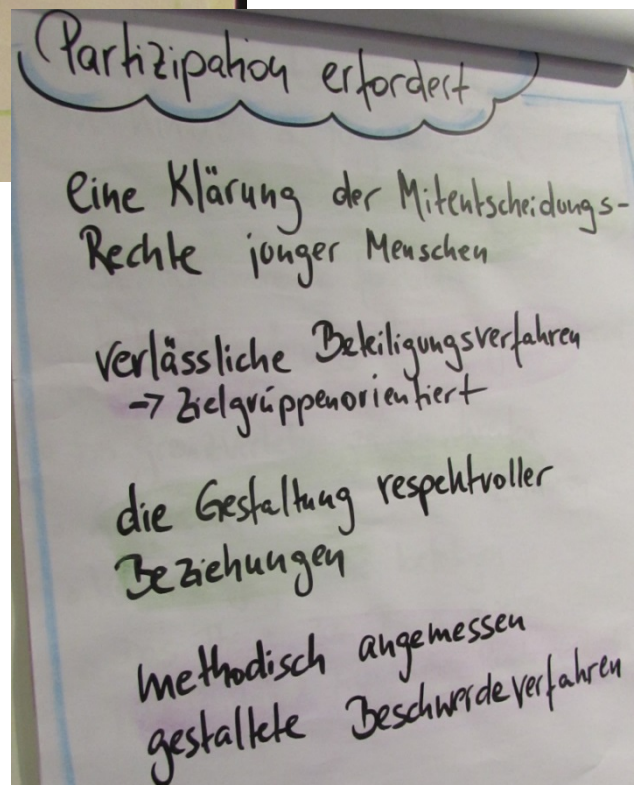 Partizipation erfordert
eine Klärung der Mitentscheidungs-
Rechte junger Menschen
verlässliche Beteiligungsverfahren
→ Zielgruppenorientiert
die Gestaltung respektvoller
Beziehungen
methodisch angemessen
gestaltete Beschwerdeverfahren